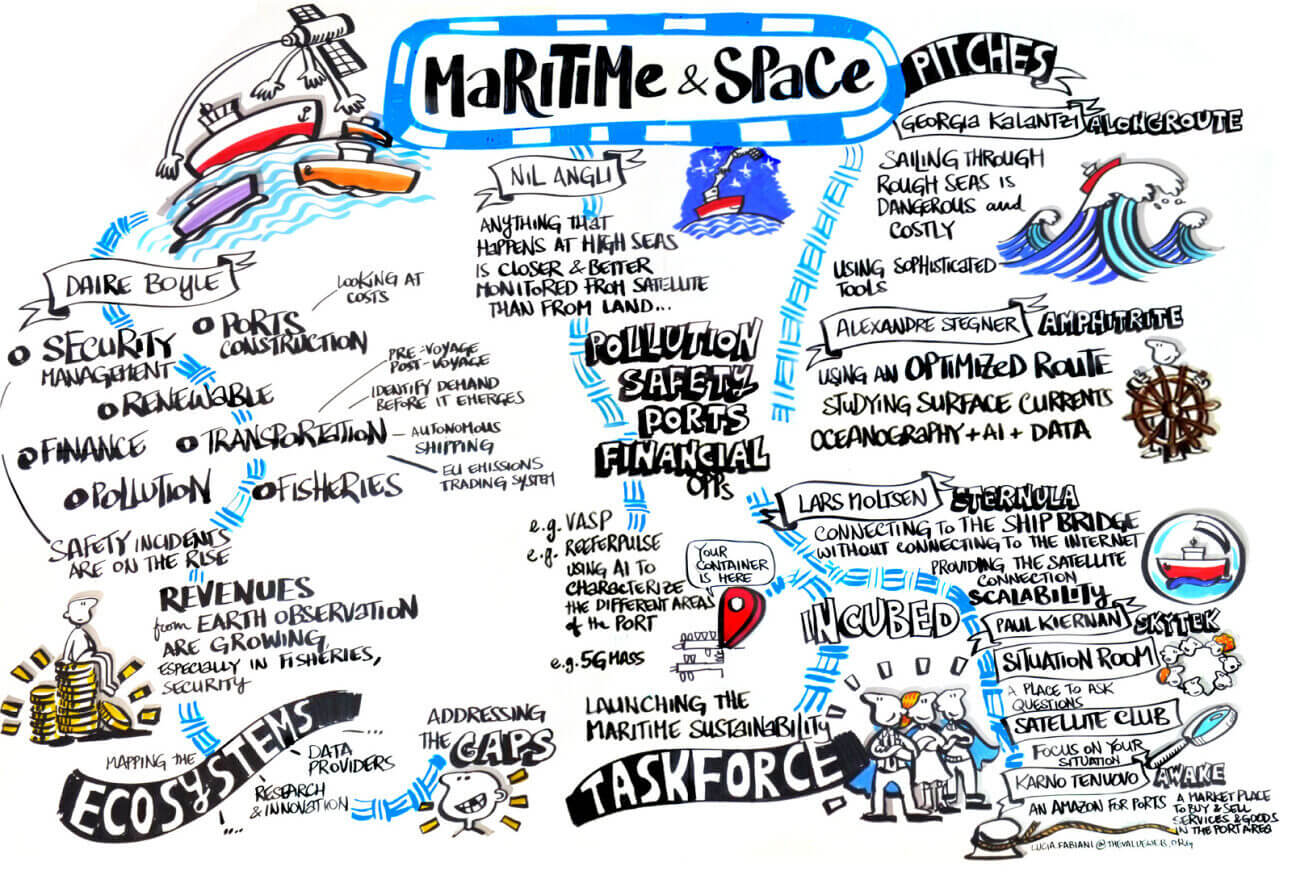 MARITIME & SPACE
DAIRE BOYLE
SECURITY
MANAGEMENT
PORTS
CONSTRUCTION
LOOKING AT
COSTS
RENEWABLE
FINANCE
TRANSPORTATION
PRE-VOYAGE
POST-VOYAGE
IDENTIFY DEMAND
BEFORE IT EMERGES
AUTONOMOUS
SHIPPING
EU EMISSIONS
TRADING SYSTEM
POLLUTION
FISHERIES
SAFETY INCIDENTS
ARE ON THE RISE
REVENUES
from EARTH OBSERVATION
ARE GROWING,
ESPECIALLY IN FISHERIES,
SECURITY
MAPPING THE
ECOSYSTEMS
....
DATA
PROVIDERS
RESEARCH
& INNOVATION
....
ADDRESSING
THE GAPS
NIL ANGLI
ANYTHING THAT
HAPPENS AT HIGH SEAS
IS CLOSER & BETTER
MONITORED FROM SATELLITE
THAN FROM LAND...
POLLUTION
SAFETY
PORTS
FINANCIAL
OPPs
e.g. VASP
e.g. REEFERPULSE
USING AI TO
CHARACTERIZE
THE DIFFERENT AREAS
of the PORT
YOUR
CONTAINER
IS HERE
e.g. 5G MASS
LAUNCHING THE
MARITIME SUSTAINABILITY
TASKFORCE
INCUBED
PITCHES
GEORGIA KALANTZI ALONGROUTE
SAILING THROUGH
ROUGH SEAS IS
DANGEROUS and
COSTLY
USING SOPHISTICATED
TOOLS
ALEXANDRE STEGNER AMPHITRITE
USING AN OPTIMIZED ROUTE
STUDYING SURFACE CURRENTS
OCEANOGRAPHY + AI + DATA
LARS MOLTSEN STERNULA
CONNECTING TO THE SHIP BRIDGE
WITHOUT CONNECTING TO THE INTERNET
PROVIDING THE SATELLITE
CONNECTION
SCALABILITY
PAUL KIERNAN SKYTEK
SITUATION ROOM
A PLACE TO ASK
QUESTIONS
SATELLITE CLUB
FOCUS ON YOUR
SITUATION
KARNO TENUOVO AWAKE
AN AMAZON FOR PORTS
A MARKET PLACE
TO BUY & SELL
SERVICES & GOODS
IN THE PORT AREA
LUCIA.FABIANI@THEVALUEWEB.ORG